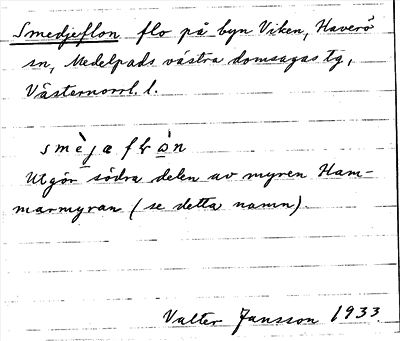 Smedjeflon flo på byn Viken, Haverö
sn, Medelpads västra domsagas tg,
Västernorrl. l.
Utgör södra delen av myren Ham-
marmyran (se detta namn).
Valter Jansson 1933.